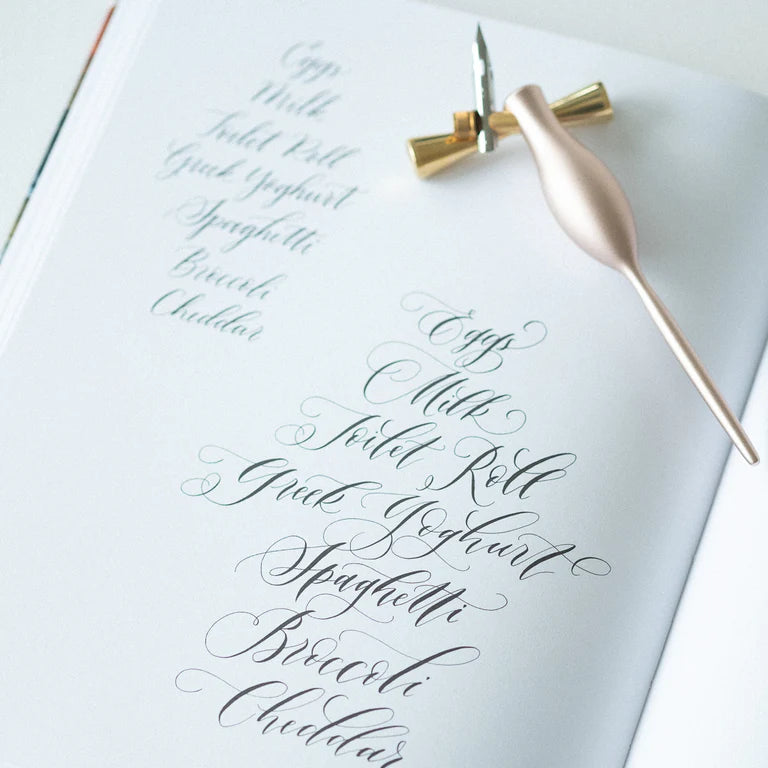 Eggs
Milk
Toilet Roll
Greek Yoghurt
Spaghetti
Broccoli
Cheddar
Eggs
Milk
Toilet Roll
Greek Yoghurt
Spaghetti
Broccoli
Cheddar